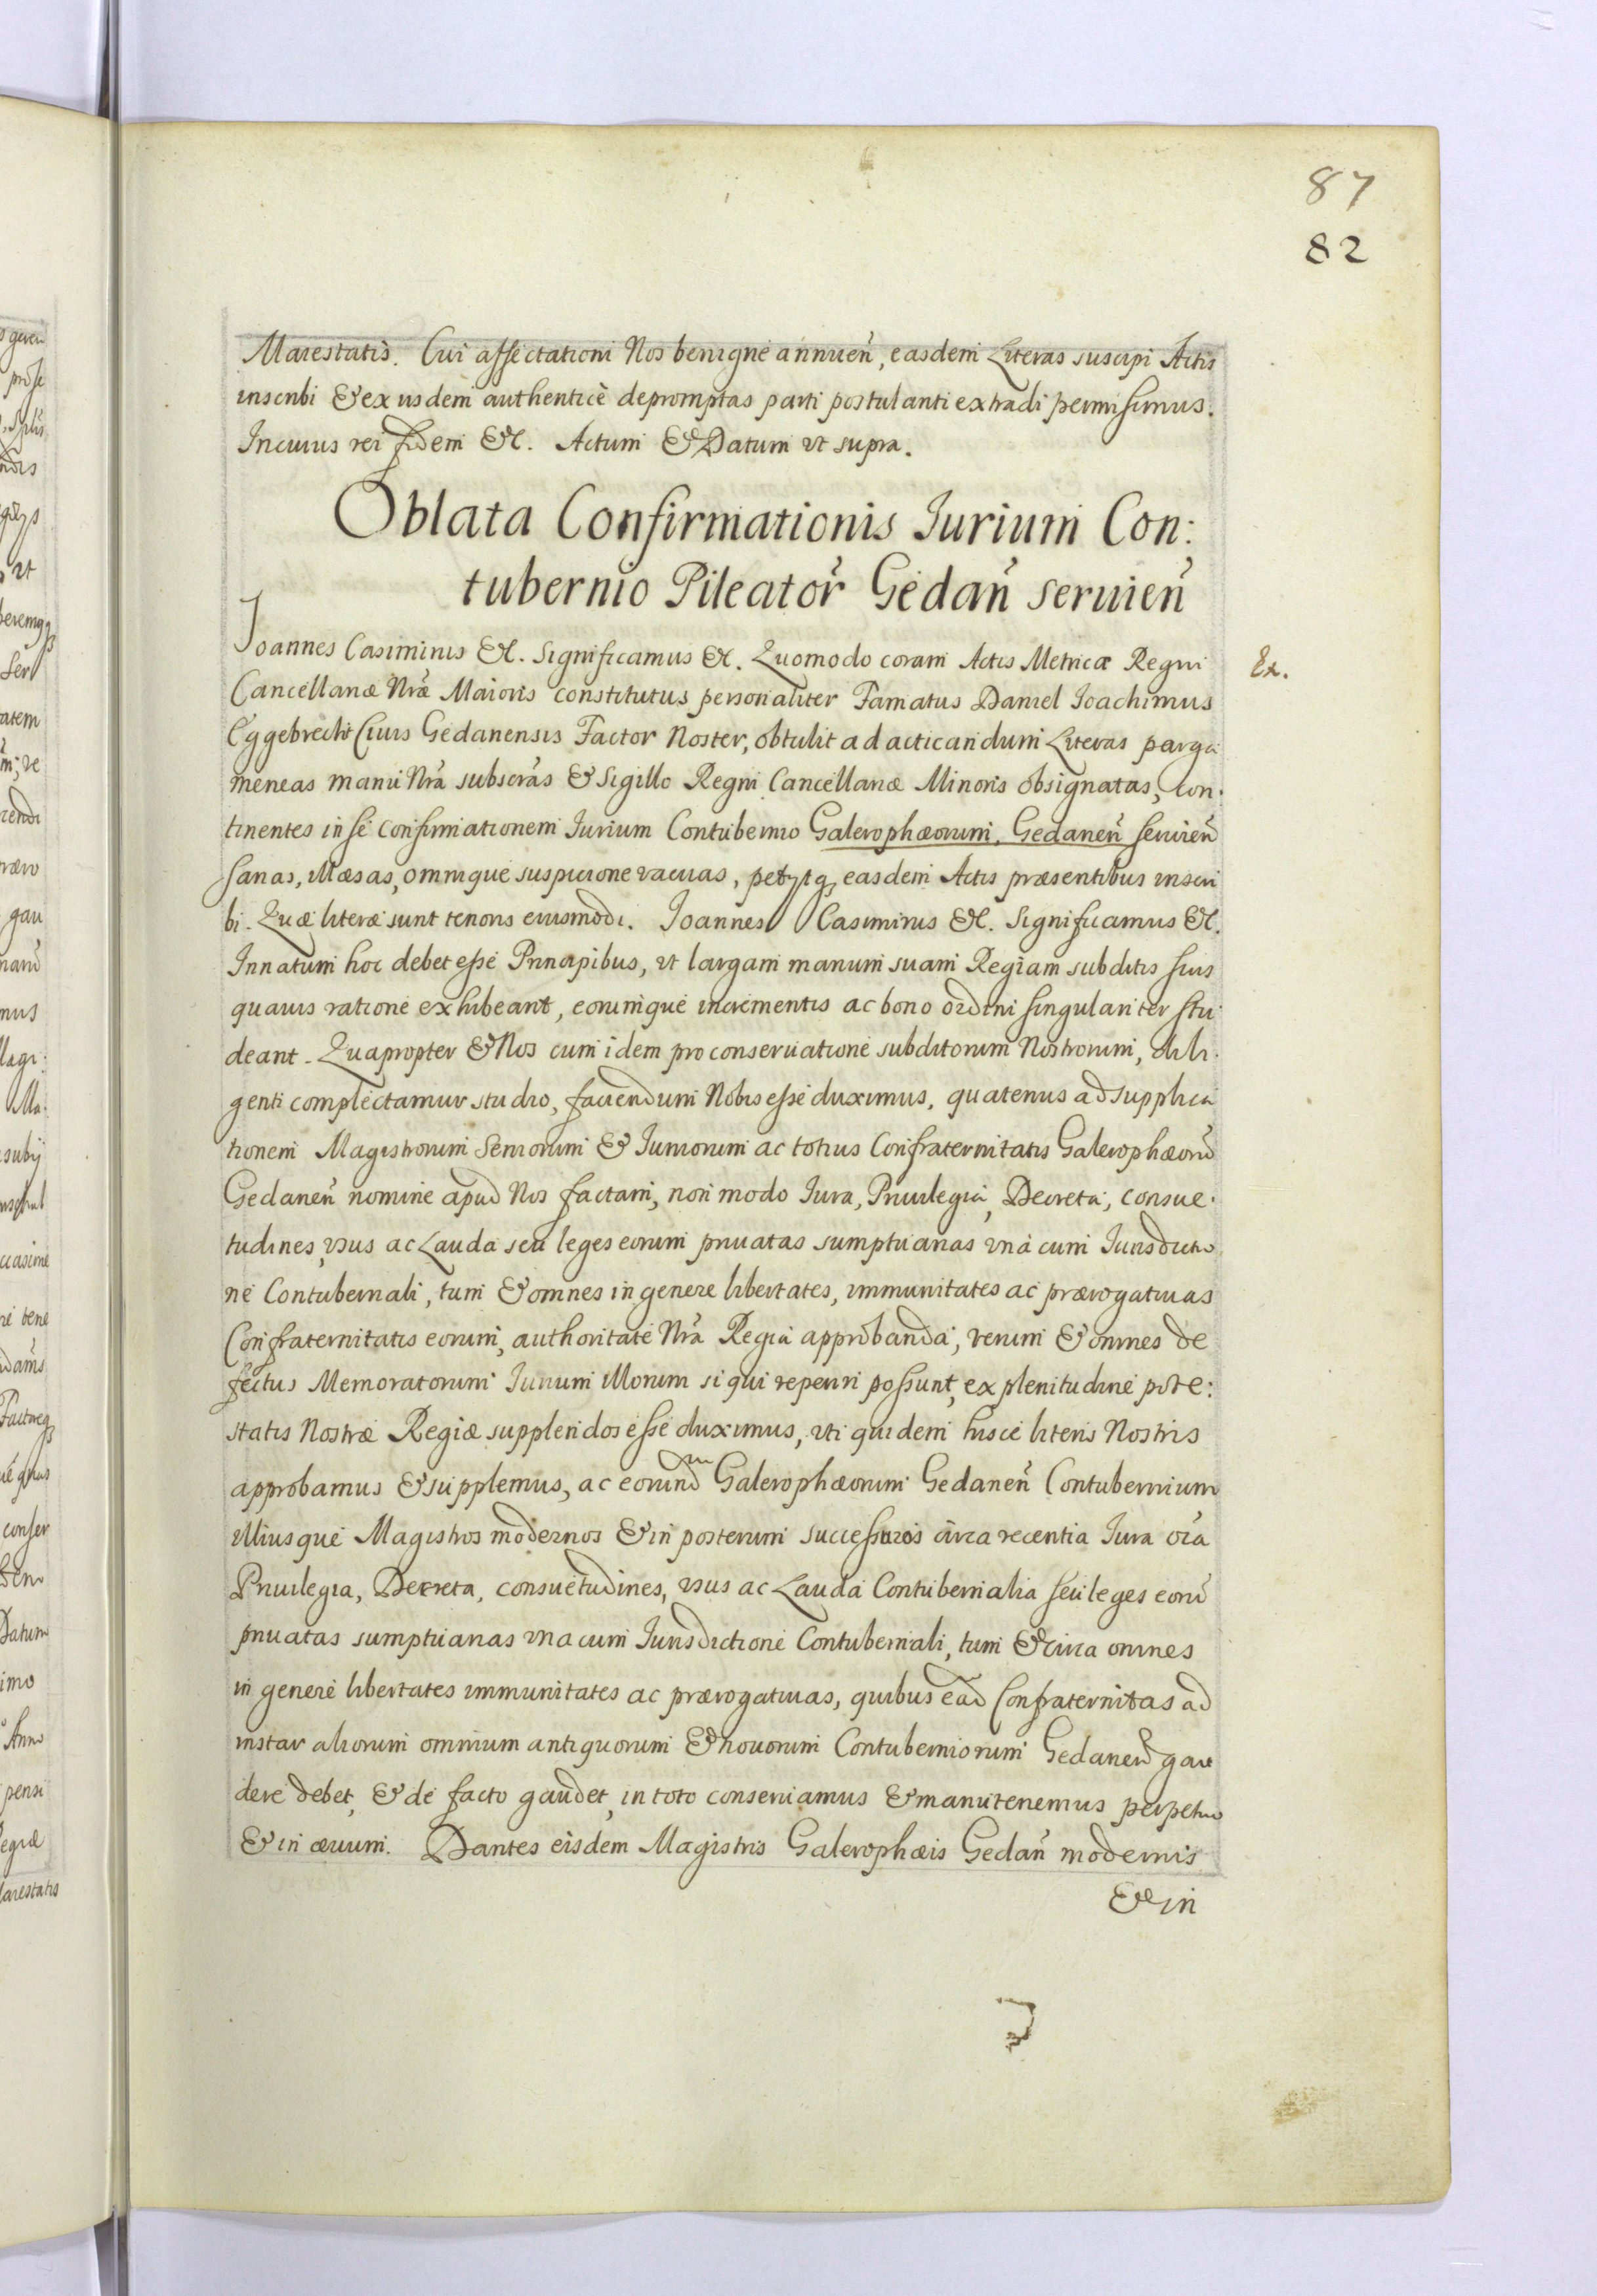 87
82
Maiestatis. Cui affectationi Nos benigne annuen̄, easdem Literas suscipi Actis
inscribi & ex ijsdem authenticè depromptas parti postulanti extradi permisimus.
In cuius rei fidem &c. Actum & Datum vt supra.
Oblata Confirmationis Iurium Con:
tubernio Pileator̄ Gedan̄ seruien̄
Ioannes Casimirus &c. Significamus &c. Quomodo coram Actis Metricæ Regni
Ex.
Cancellariæ Nr̄æ Maioris constitutus personaliter Famatus Daniel Ioachimus
Eggebrecht Ciuis Gedanensis Factor Noster, obtulit ad acticandum Literas perga
meneas manu Nr̄a subscr̄as & Sigillo Regni Cancellariæ Minoris obsignatas, Con:
tinentes in se confirmationem Iurium Contubernio Galerophæorum, Gedanen̄ seruien̄
sanas, illæsas, omnique suspicione vacuas, petytq, easdem Actis præsentibus inscri
bi. Quæ literæ sunt tenoris eiusmodi. Ioannes Casimirus &c. Significamus &c.
Innatum hoc debet esse Principibus, vt largam manum suam Regiam subditis suis
quauis ratione exhibeant, eorumque incrementis ac bono ordini singulariter stu
deant. Quapropter & Nos cum idem pro conseruatione subditorum Nostrorum, dili:
genti complectamur studio, faciendum Nobis esse duximus, quatenus ad supplica
tionem Magistrorum Seniorum & Iuniorum ac totius Confraternitatis Galerophæorū
Gedanen̄ nomine apud Nos factam, non modo Iura, Priuilegia, Decreta, consue:
tudines, vsus ac Lauda seu leges eorum priuatas sumptuarias vnà cum Iurisdictio
ne Contubernali, tum & omnes in genere libertates, immunitates ac prærogatiuas
Confraternitatis eorum, authoritate Nr̄a Regia approbanda, verum & omnes de
fectus Memoratorum Iurium illorum si qui reperiri possunt, ex plenitudine pote:
statis Nostræ Regiæ supplendos esse duximus, vti quidem hisce literis Nostris
approbamus & supplemus, ac eorund̄m Galerophæorum Gedanen̄ Contubernium
illiusque Magistros modernos & in posterum successuros circa recentia Iura oı̄a
Priuilegia, Decreta, consuetudines, vsus ac Lauda Contubernialia seu leges eorū
priuatas sumptuarias vna cum Iurisdictione Contuberniali, tum & circa omnes
in genere libertates immunitates ac prærogatiuas, quibus ead̄ Confraternitas ad
instar aliorum omnium antiquorum & nouorum Contuberniorum Gedanen̄ gau
dere debet, & de facto gaudet, in toto conseruamus & manutenemus perpetuo
& in æuum. Dantes eisdem Magistris Galerophæis Gedan̄ modernis
& in